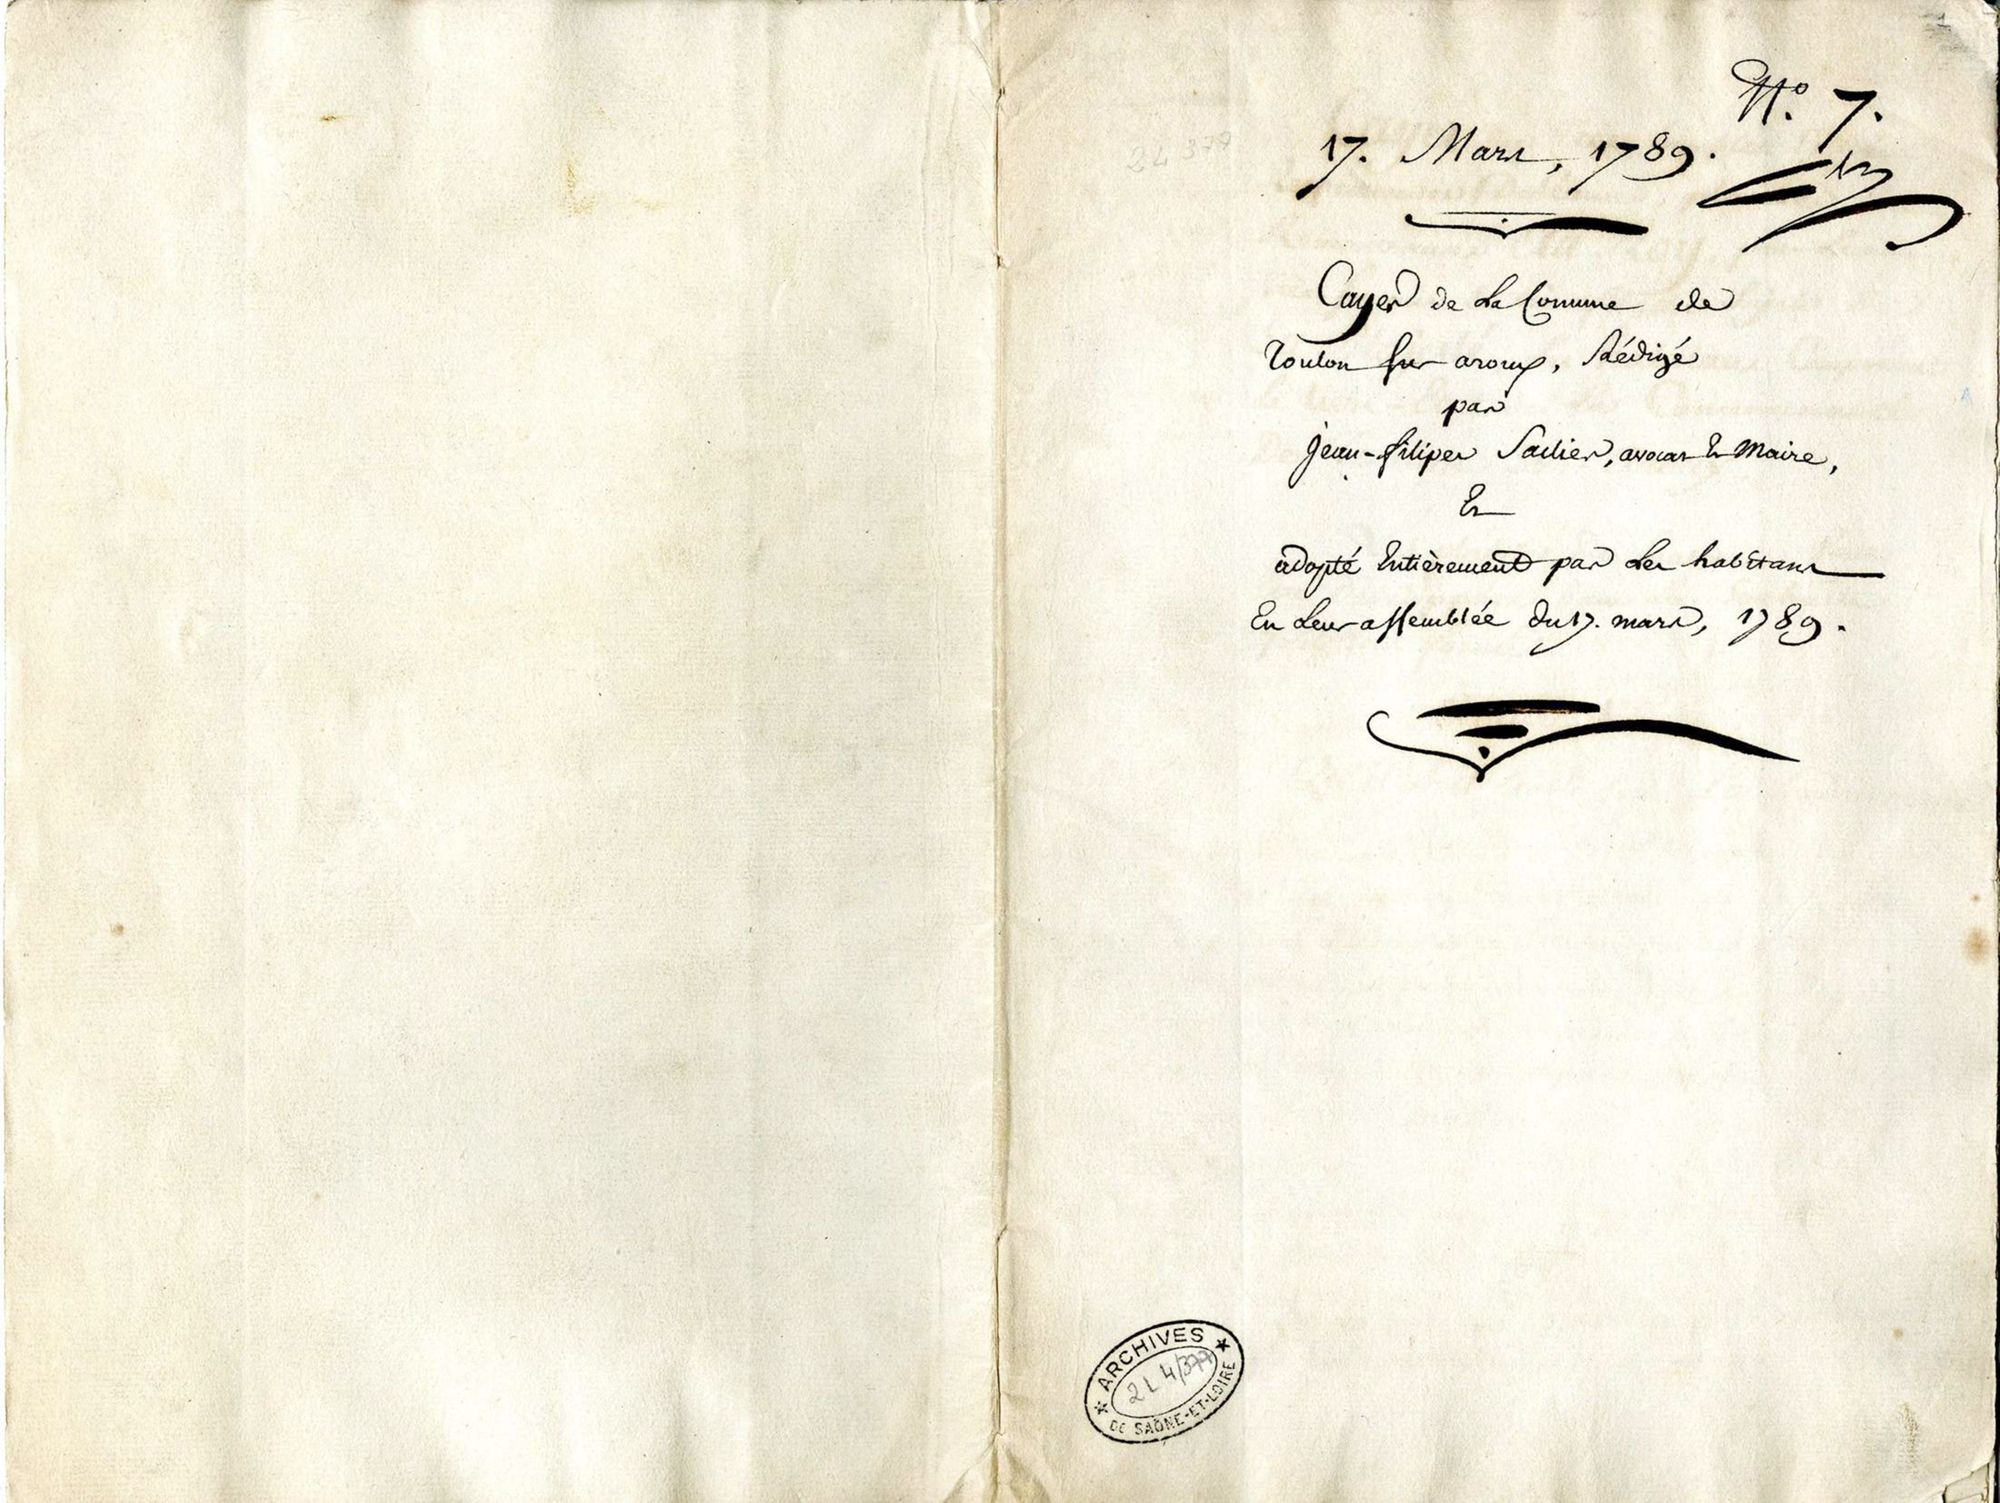 N.º 7.
17. Mars, 1789.
Cayer de La Comune de
Toulon sur aroux, Rédigé
par
jean-filiper Saclier, avocat Et Maire,
Et
adopté Entièrement par Les habitans
En Leur assemblée du 17. mars, 1789.
ARCHIVES
2 L 4/377
DE SAÔNE-ET-LOIRE